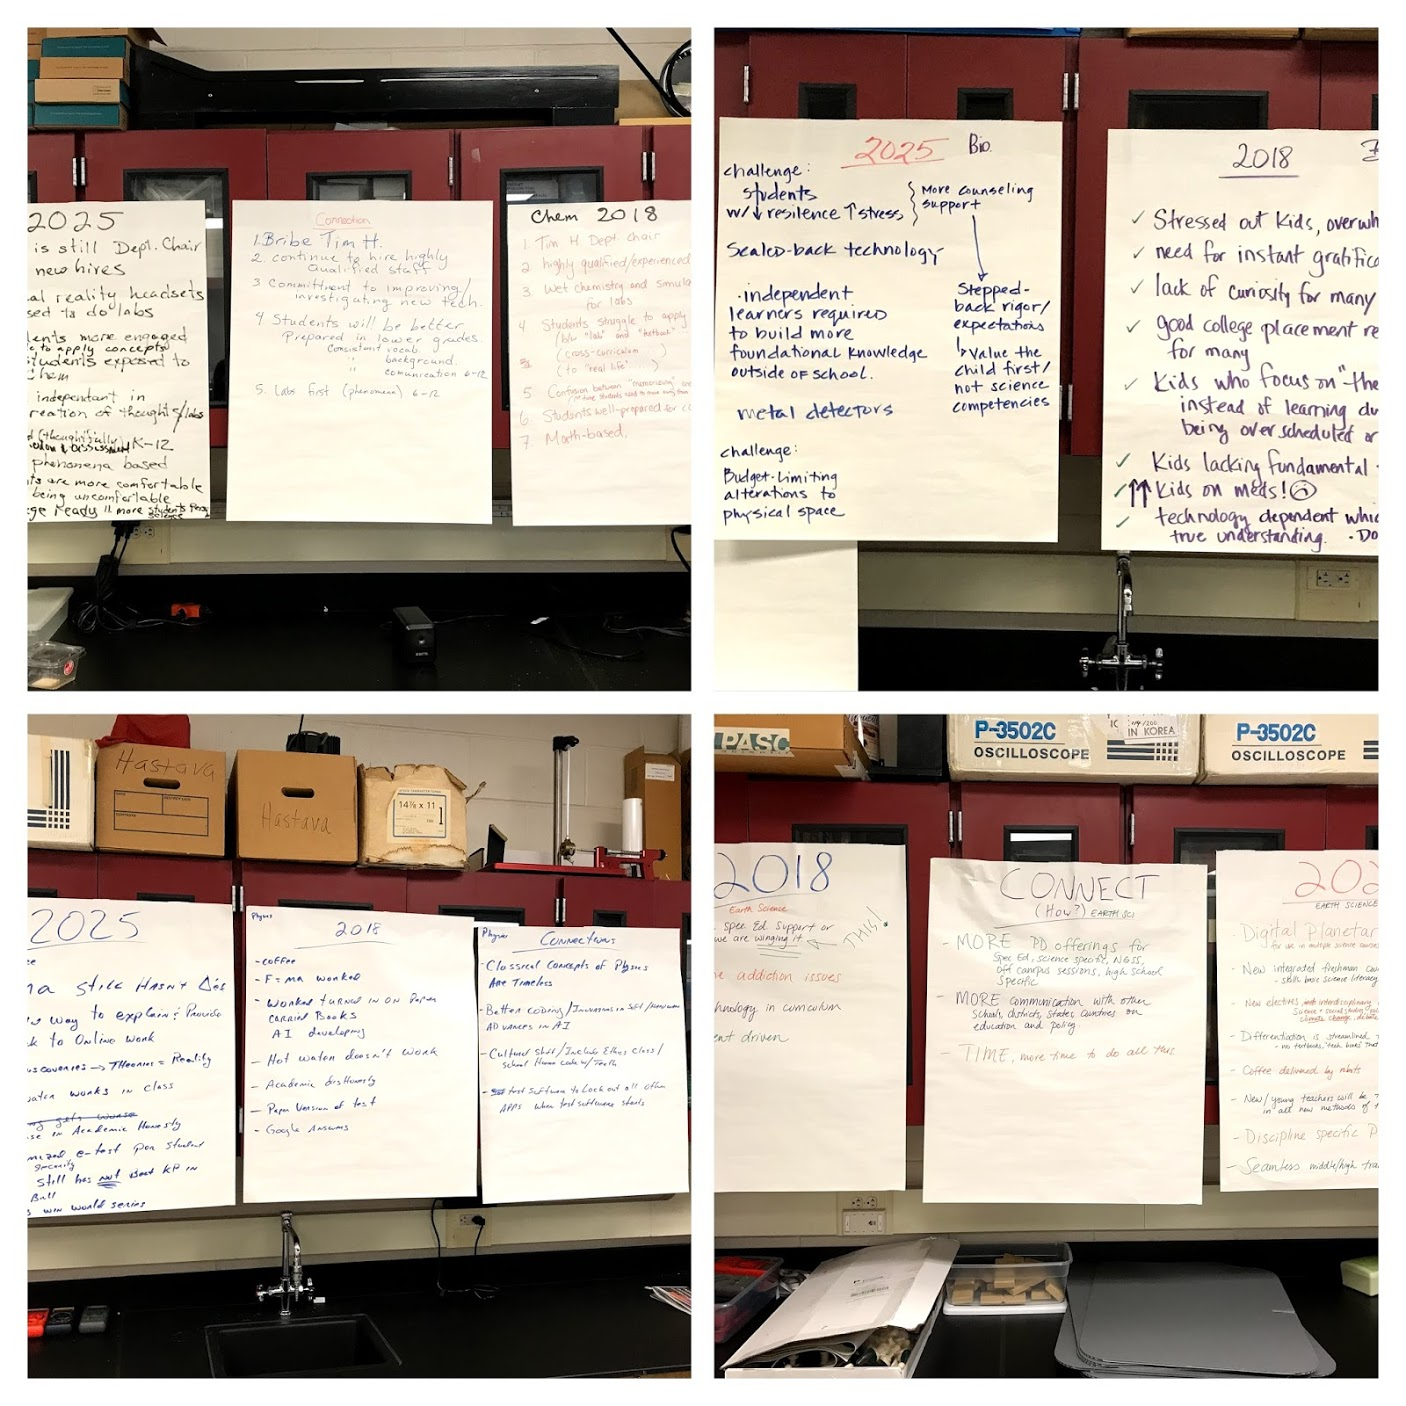 2025
is still Dept. Chair
new hires
al reality headsets
sed to do labs
dents more engaged
to apply concepts
students exposed to
Chem
independent in
reation of thoughts/labs
K-12
phenomena based
ts are more comfortable
being uncomfortable
ge Ready " more students
Science
Connection
1. Bribe Tim H.
2. continue to hire highly
Qualified staff
3. Committment to improving/
investigating new tech.
4. Students will be better
Prepared in lower grades.
Consistant vocab.
" background
" comunication 6-12
5. Labs first (phenomena) 6-12
Chem 2018
1. Tim H Dept. chair
2. highly qualified/experienced
3. Wet chemistry and simula
for labs
4. Students struggle to apply
(b/w "lab" and
(cross-curriculum )
(to "real life" ....)
5. Confusion between "memorizing"
6. Students well-prepared for co
7. Math-based.
2025 Bio.
challenge:
students
w/↓ resilence ↑ stress
More counseling
support
Scaled-back technology
Stepped-
back rigor/
expectations
↳ Value the
child first/
not science
competencies
·independent
learners required
to build more
foundational knowledge
outside of school.
metal detectors
challenge:
Budget-Limiting
alterations to
physical space
2018
✓ Stressed out kids, overwh
✓ need for instant gratifica
✓ lack of curiosity for many
✓ good college placement re
for many
✓ Kids who focus on "the
instead of learning du
being overscheduled or
✓ Kids lacking fundamental
✓ ↑↑ Kids on meds! ☹
✓ technology dependent whic
true understanding. · Do
Hastava
Hastava
14⅞ x 11
1
2025
ma still Hasn't Δ'ed
way to explain & Provide
k to Online work
coveries → Theories = Reality
water works in class
se in Academic Honesty
mized e-test per student
security
Still has not Beat KP in
Ball
win world series
Physics
2018
- coffee
- F=ma worked
- Worked turned in on Paper
Carried Books
AI developing
- Hot water doesn't work
- Academic dishonesty
- Paper Version of test
- Google Answers
Physics
Connections
- Classical Concepts of Physics
Are Timeless
- Better coding/Inovations in Soft/Hardware
ADvances in AI
- Cultural shift/Include Ethics class/
school Honor code w/ Teeth
- test software to Lock out all other
APPS when test software starts
PASC
P-3502C
OSCILLOSCOPE
IN KOREA
P-3502C
OSCILLOSCOPE
2018
Earth Science
spec Ed support or
we are winging it
THIS!
e addiction issues
hnology in curriculum
ent driven
CONNECT
(How?) EARTH SCI
- MORE PD offerings for
Spec Ed, science specific, NGSS,
Off campus sessions, high school
specific
- MORE communication with other
schools, districts, states, countries on
education and policy.
- TIME, more time to do all this
202
EARTH SCIENCE
- Digital Planetar
for use in multiple science courses
- New integrated freshman cou
- skills base science literacy
- New electives, with interdisciplinary
Science + social study
climate change, debate
- Differentiation is streamlined
- no textbooks, "tech books" that
- Coffee delivered by robots
- New/young teachers will be
in all new methods of t
- Discipline specific P
- Seamless middle/high tra